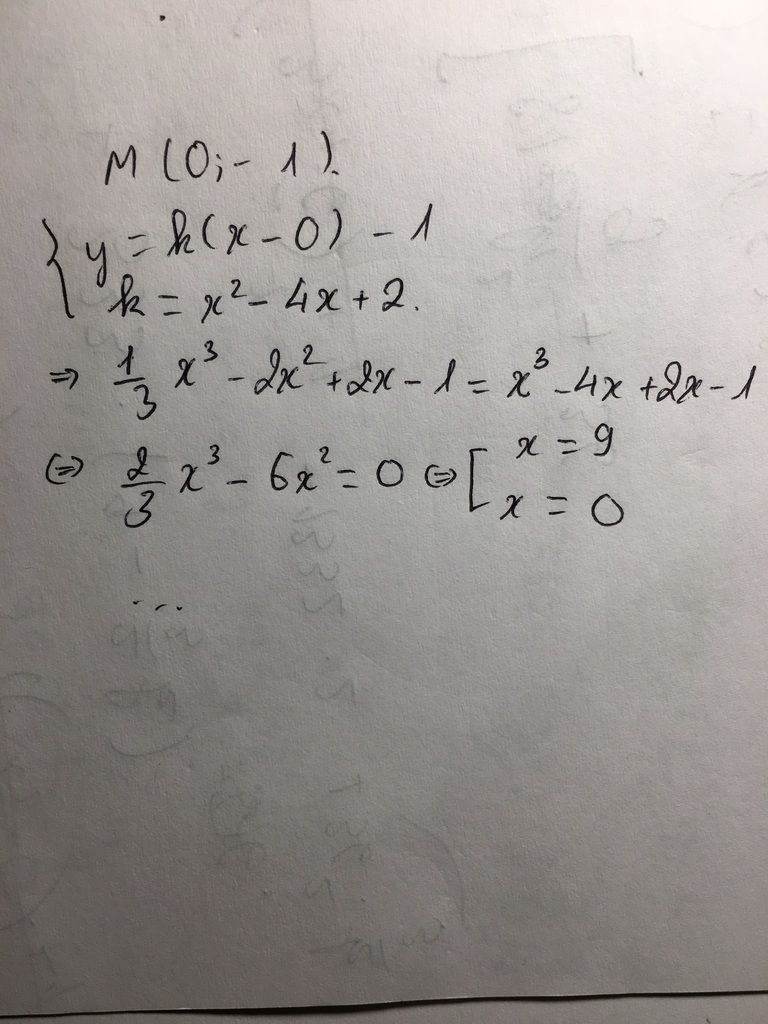 M (0; - 1).
{ y = k(x - 0) - 1
k = x² - 4x + 2.
⇒ 1/3 x³ - 2x² + 2x - 1 = x³ - 4x + 2x - 1
⇔ 2/3 x³ - 6x² = 0 ⇔ [ x = 9
x = 0
...